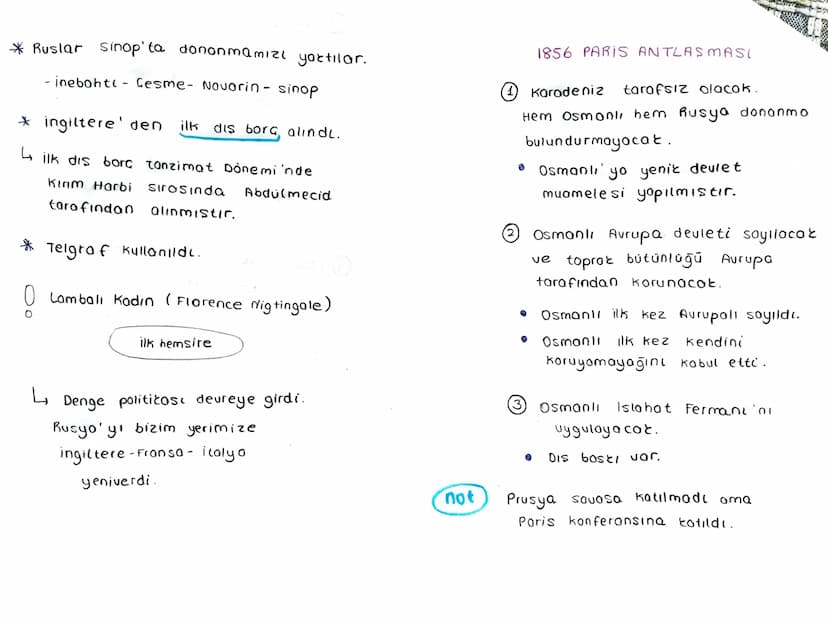 * Ruslar Sinop'ta donanmamızı yaktılar.
- inebahtı - Çeşme - Navarin - sinop
* ingiltere'den ilk dış borç alındı.
↳ ilk dış borç Tanzimat Dönemi'nde
Kırım Harbi sırasında Abdülmecid
tarafından alınmıştır.
* Telgraf kullanıldı.
! Lambalı Kadın (Florence Nigtingale)
ilk hemşire
↳ Denge politikası devreye girdi.
Rusya'yı bizim yerimize
ingiltere - Fransa - italya
yeniverdi.
1856 PARİS ANTLAŞMASI
① Karadeniz tarafsız olacak.
Hem Osmanlı hem Rusya donanma
bulundurmayacak.
• Osmanlı'ya yenik devlet
muamelesi yapılmıştır.
② Osmanlı Avrupa devleti sayılacak
ve toprak bütünlüğü Avrupa
tarafından korunacak.
• Osmanlı ilk kez Avrupalı sayıldı.
• Osmanlı ilk kez kendini
koruyamayağını kabul etti.
③ Osmanlı Islahat Fermanı'nı
uygulayacak.
• Dış baskı var.
not Prusya savaşa katılmadı ama
Paris konferansına katıldı.